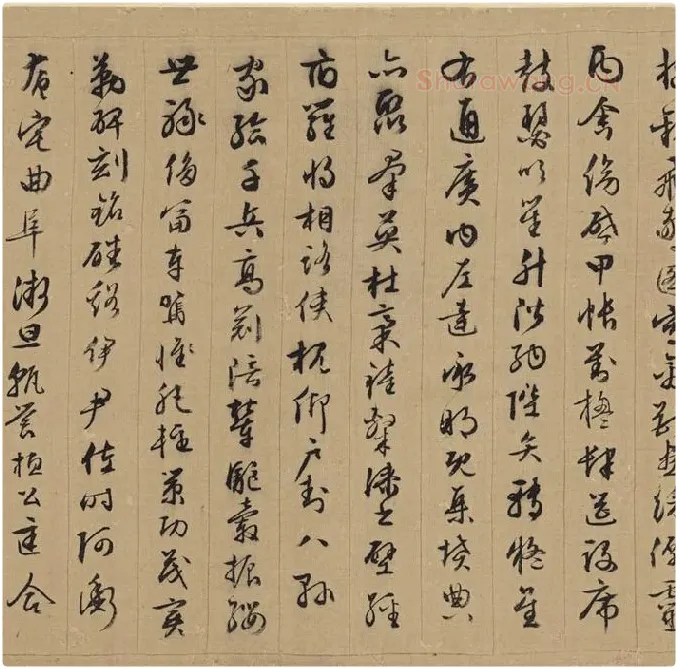 樓觀飛驚圖寫禽獸畫綵仙靈
丙舍傍啟甲帳對楹肆筵設席
鼓瑟吹笙升階納陛弁轉疑星
右通廣內左達承明既集墳典
亦聚群英杜稾鍾隸漆書壁經
府羅將相路俠槐卿戶封八縣
家給千兵高冠陪輦驅轂振纓
世祿侈富車駕肥輕策功茂實
勒碑刻銘磻溪伊尹佐時阿衡
奄宅曲阜微旦孰營桓公匡合
Shufawang.CN